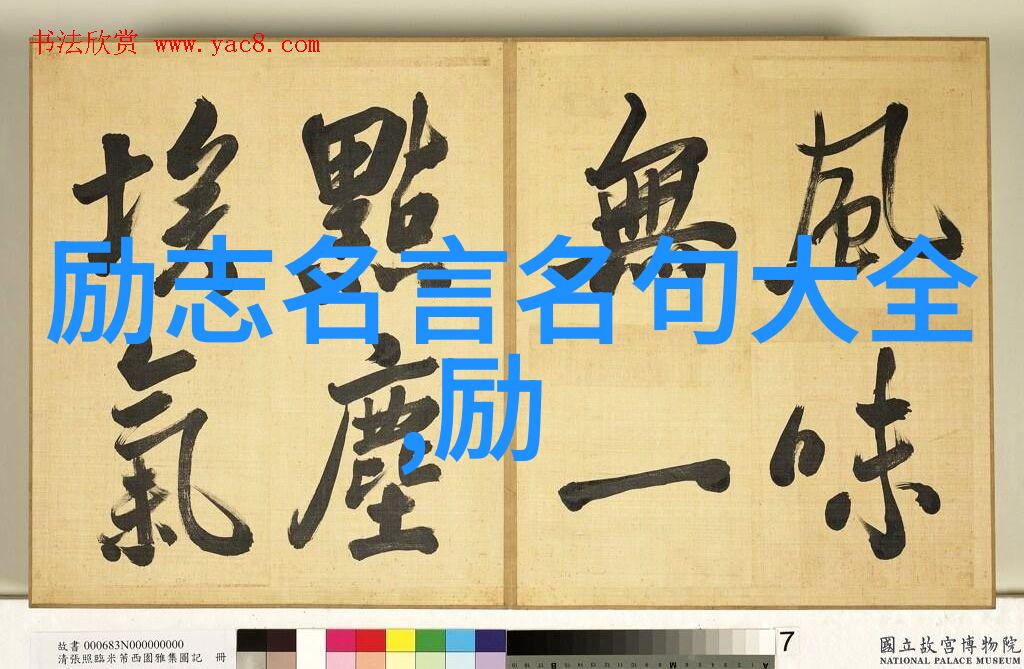 书法欣赏 www.yac8.com
風味
無一
點塵
埃氣
励志名言名句大全
,励
故書 000683N000000000
清張照臨米芾西園雅集圖記 冊
7
國立故宮博物院
NATIONAL PALACE MUSEUM